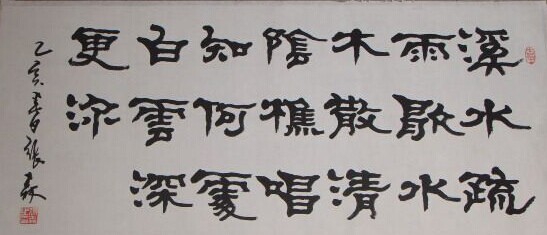 溪水疏
雨歇水
木散清
陰樵唱
知何處
白雲深
更深
乙亥春日張森